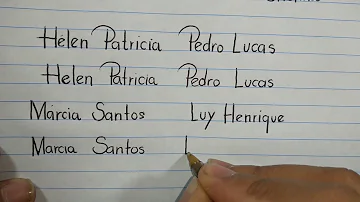 Helen Patricia Pedro Lucas
Helen Patricia Pedro Lucas
Márcia Santos Luy Henrique
Marcia Santos L